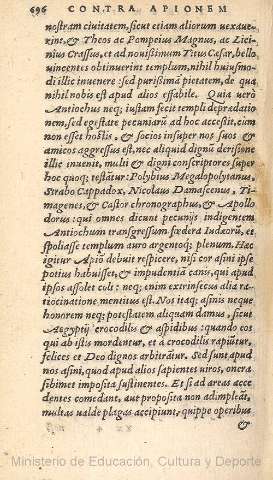 696 CONTRA APIONEM
nostram ciuitatem, sicut etiam aliorum uexaue-
rint, & Theos ac Pompeius Magnus, ac Lici-
nius Crassus, et ad nouissimum Titus Cæsar, bello
uincentes obtinuerint templum, nihil huiusmo-
di illic inuenere: sed purissimã pietatem, de qua
nihil nobis est apud alios effabile. Quia uerò
Antiochus neq; iustam fecit templi deprædatio-
nem, sed egestate pecuniarũ ad hoc accessit, cùm
non esset hostis, & socios insuper nos suos &
amicos aggressus est, nec aliquid dignũ derisione
illic inuenit, multi & digni conscriptores super
hoc quoq; testãtur: Polybius Megalopolytanus,
Strabo Cappadox, Nicolaus Damascenus, Ti-
magenes, & Castor chronographus, & Apollo
dorus: qui omnes dicunt pecunijs indigentem
Antiochum transgressum fœdera Iudæorũ, et
spoliasse templum auro argentoq; plenum. Hæc
igitur Apiõ debuit respicere, nisi cor asini ipse
potius habuisset, & impudentiã canis, qui apud
ipsos assolet coli: neq; enim extrinsecus alia ra-
tiocinatione mentitus est. Nos itaq; asinis neque
honorem neq; potestatem aliquam damus, sicut
Aegyptij crocodilis & aspidibus: quando eos
qui ab istis mordentur, et à crocodilis rapiũtur,
felices et Deo dignos arbitrãtur. Sed sunt apud
nos asini, quod apud alios sapientes uiros, onera
sibimet imposita sustinentes. Et si ad areas acce
dentes comedant, aut proposita non adimpleãt,
multas ualde plagas accipiunt, quippe operibus
&
Ministerio de Educación, Cultura y Deporte